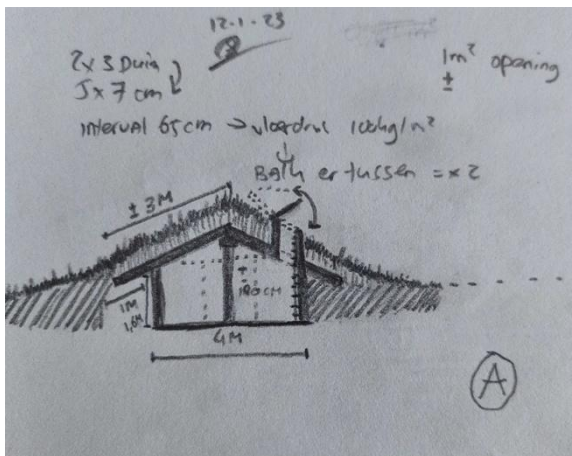 12-1-23
2x3 Duim
5x7 cm
1m² opening
±
interval 65cm → vloerdruk 100kg/m²
Balk er tussen = x2
± 3M
1M
1,6M
±
180CM
4M
A